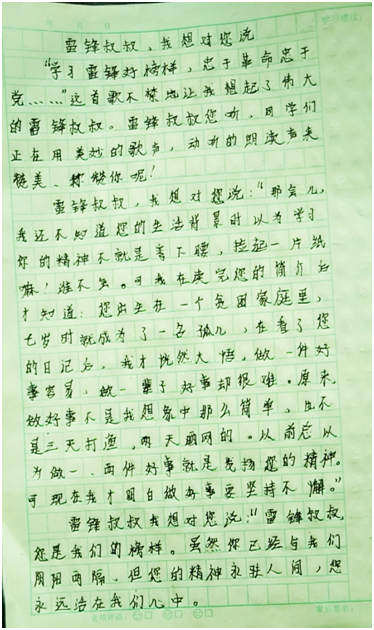 年 月 日
雷锋叔叔，我想对您说
"学习雷锋好榜样，忠于革命忠于
党……"这首歌不禁地让我想起了伟大
的雷锋叔叔。雷锋叔叔您听，同学们
正在用美妙的歌声，动听的朗读声来
赞美、称赞你呢！
雷锋叔叔，我想对您说："那会儿，
我还不知道您的生活背景时以为学习
你的精神不就是弯下腰，捡起一片纸
嘛！谁不会。可我在读完您的简介后
才知道：您出生在一个贫困家庭里，
七岁时就成为了一名孤儿，在看了您
的日记后，我才恍然大悟，做一件好
事容易，做一辈子好事却很难。原来，
做好事不是我想象中那么简单，且不
是三天打渔，两天晒网的。从前总以
为做一、两件好事就是发扬您的精神。
可现在我才明白做好事要坚持不懈。"
雷锋叔叔我想对您说："雷锋叔叔，
您是我们的榜样。虽然你已经与我们
阴阳两隔，但您的精神永驻人间，您
永远活在我们心中。
家长签名：